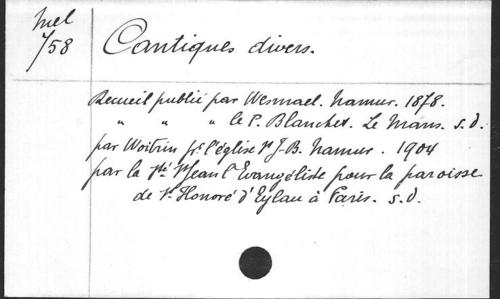 Mel
1/58
Cantiques divers.
Recueil publié par Wesmael. Namur. 1878.
" " " le P. Blanchet. Le Mans. s.d.
par Woitrin pr. l'église St J-B. Namur. 1904
par la Sté St Jean l'Evangéliste pour la paroisse
de St Honoré d'Eylau à Paris. s.d.